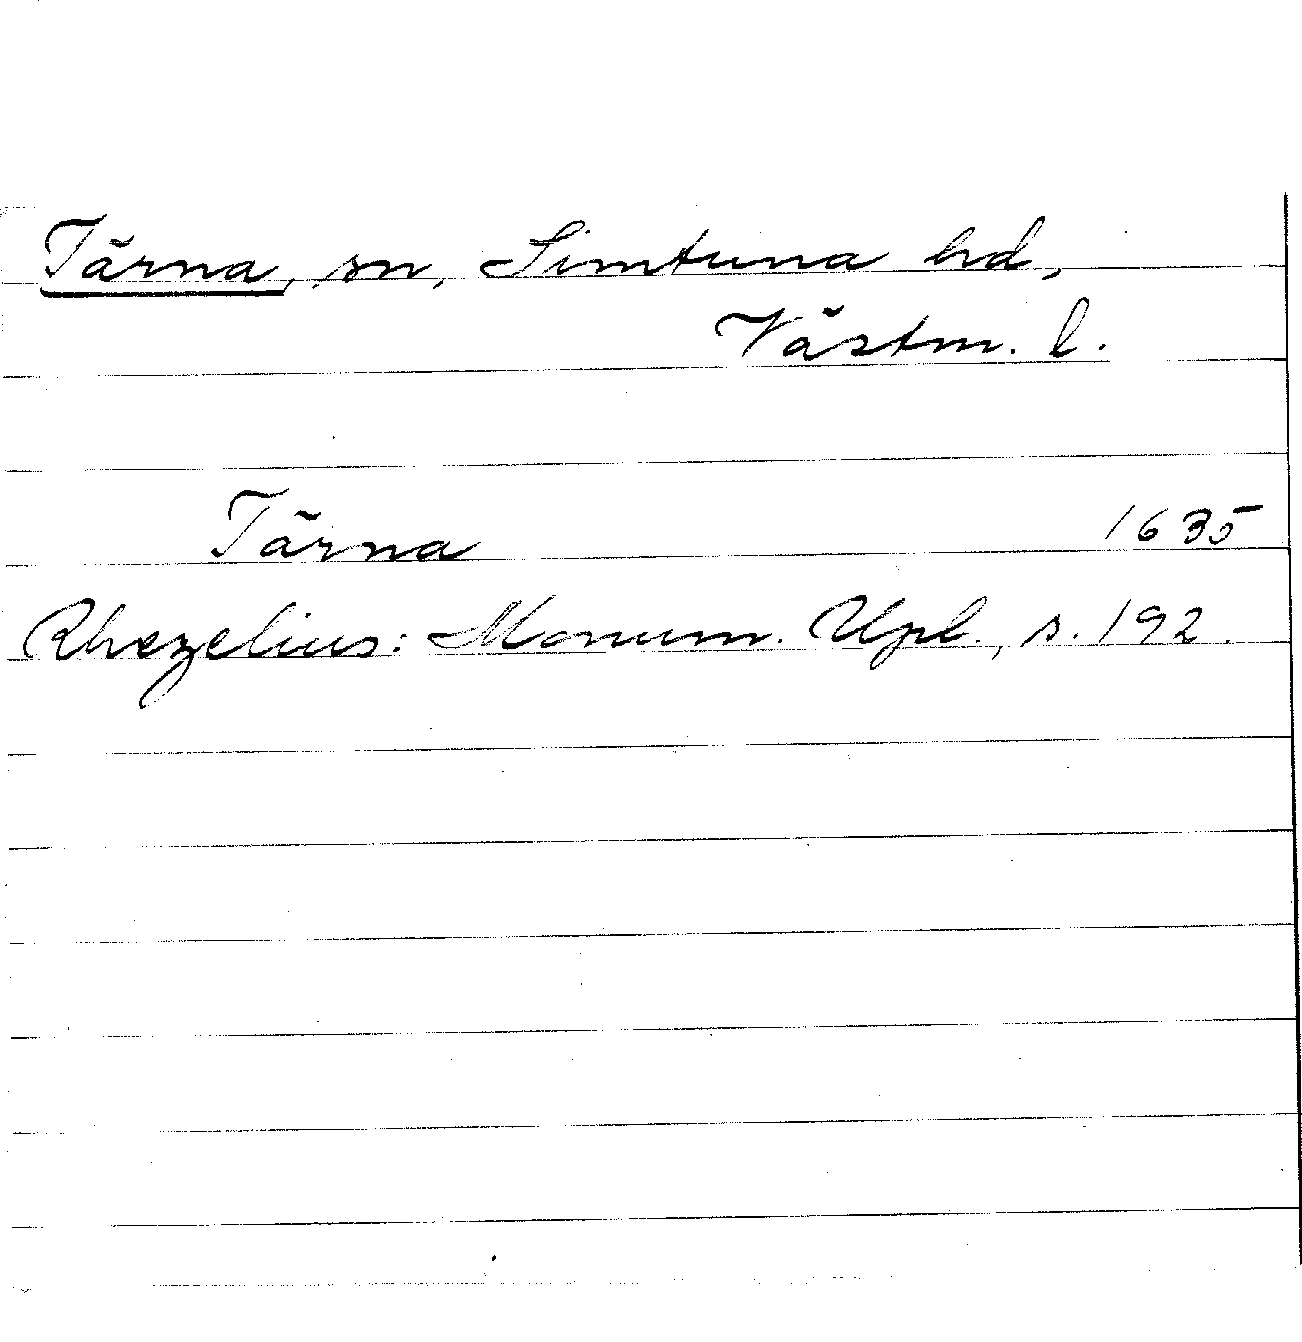 Tärna, sn, Simtuna hd,
Västm. l.
Tärna 1635
Rhezelius: Monum. Upl., s. 192.